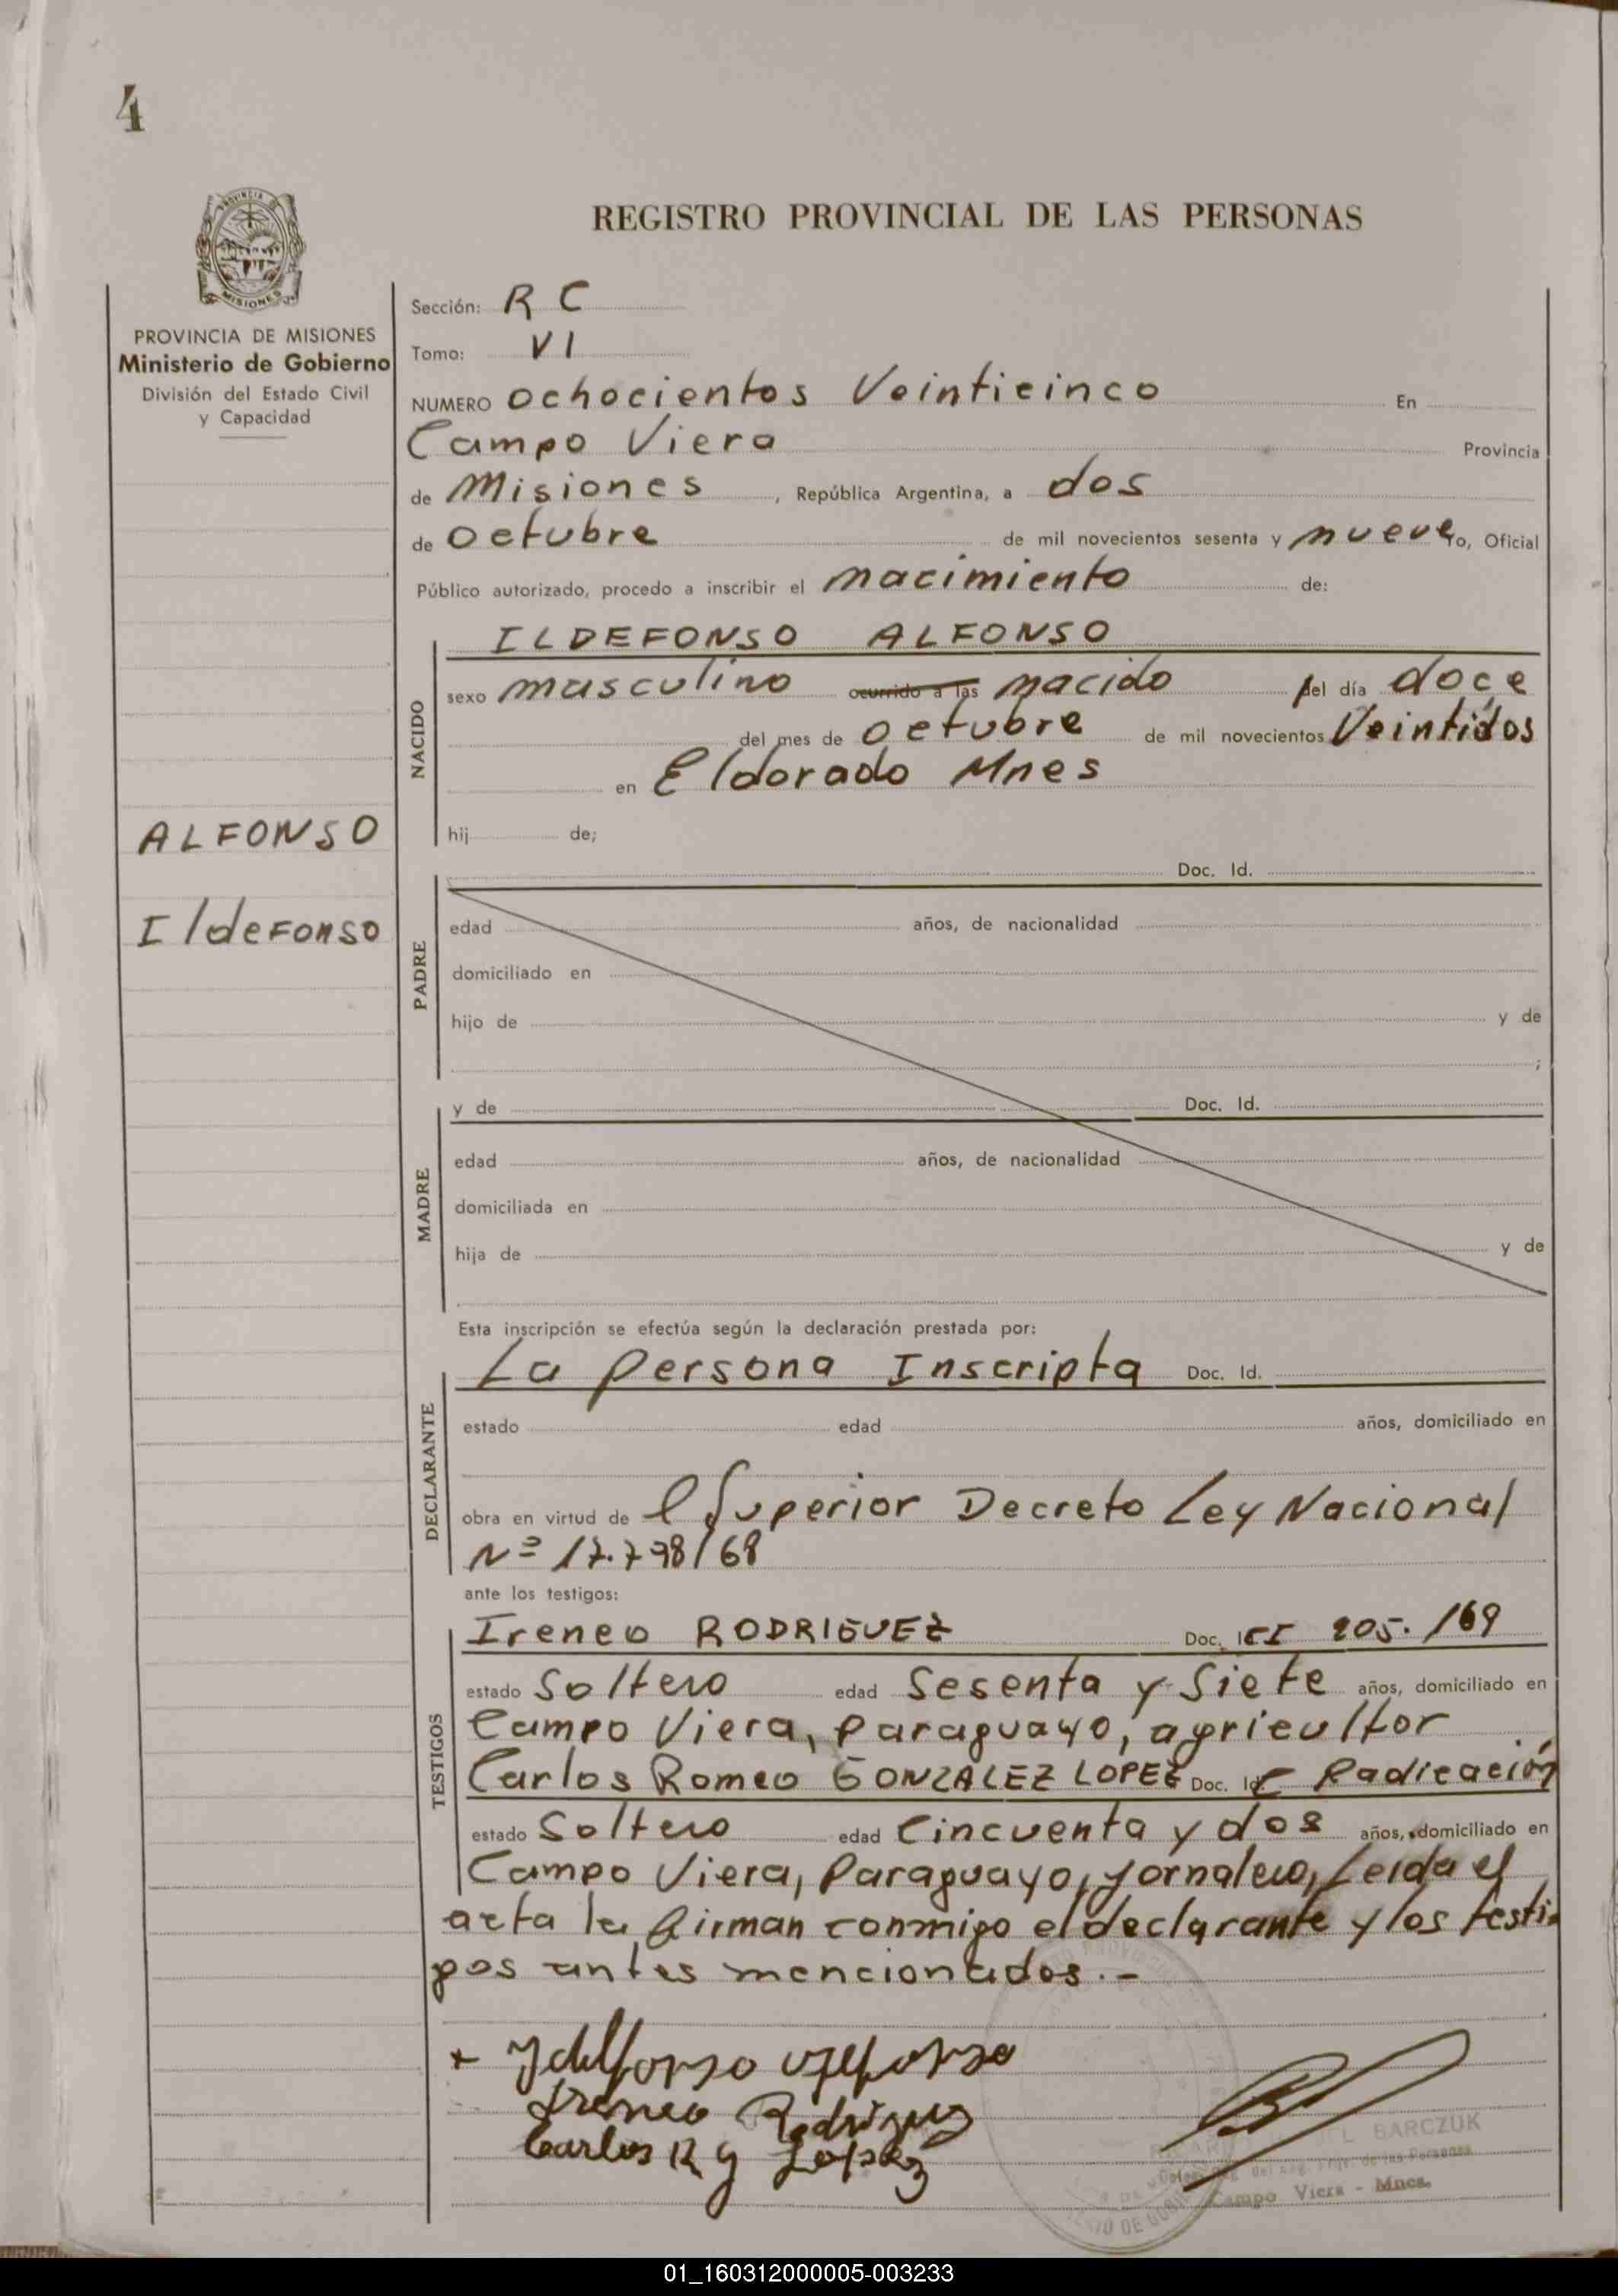 4
PROVINCIA DE MISIONES
MISIONES
PROVINCIA DE MISIONES
Ministerio de Gobierno
División del Estado Civil
y Capacidad
ALFONSO
IldeFonso
REGISTRO PROVINCIAL DE LAS PERSONAS
Sección: R C
Tomo: VI
NUMERO Ochocientos Veinticinco En
Campo Viera Provincia
de Misiones , República Argentina, a dos
de Octubre de mil novecientos sesenta y nueve yo, Oficial
Público autorizado, procedo a inscribir el nacimiento de:
ILDEFONSO ALFONSO
NACIDO
sexo masculino ocurrido a las nacido del día doce
del mes de Octubre de mil novecientos Veintidos
en Eldorado Mnes
hij de;
Doc. Id.
PADRE
edad años, de nacionalidad
domiciliado en
hijo de y de
;
y de Doc. Id.
MADRE
edad años, de nacionalidad
domiciliada en
hija de y de
Esta inscripción se efectúa según la declaración prestada por:
La persona Inscripta Doc. Id.
DECLARANTE
estado edad años, domiciliado en
obra en virtud de l Superior Decreto Ley Nacional
Nº 17.798/68
ante los testigos:
Ireneo RODRIGUEZ Doc. Id CI 205./69
TESTIGOS
estado Soltero edad Sesenta y Siete años, domiciliado en
Campo Viera, Paraguayo, agricultor
Carlos Romeo GONZALEZ LOPEZ Doc. Id C Radicación
estado Soltero edad Cincuenta y dos años, domiciliado en
Campo Viera, Paraguayo, Jornalero, Leida el
acta la firman conmigo el declarante y los testi-
gos antes mencionados.-
+ Ydelfonso Alfonso
Ireneo Rodriguez
Carlos R G Lopez
BARCZUK
de las Personas
Campo Viera - Mnes.
01_160312000005-003233